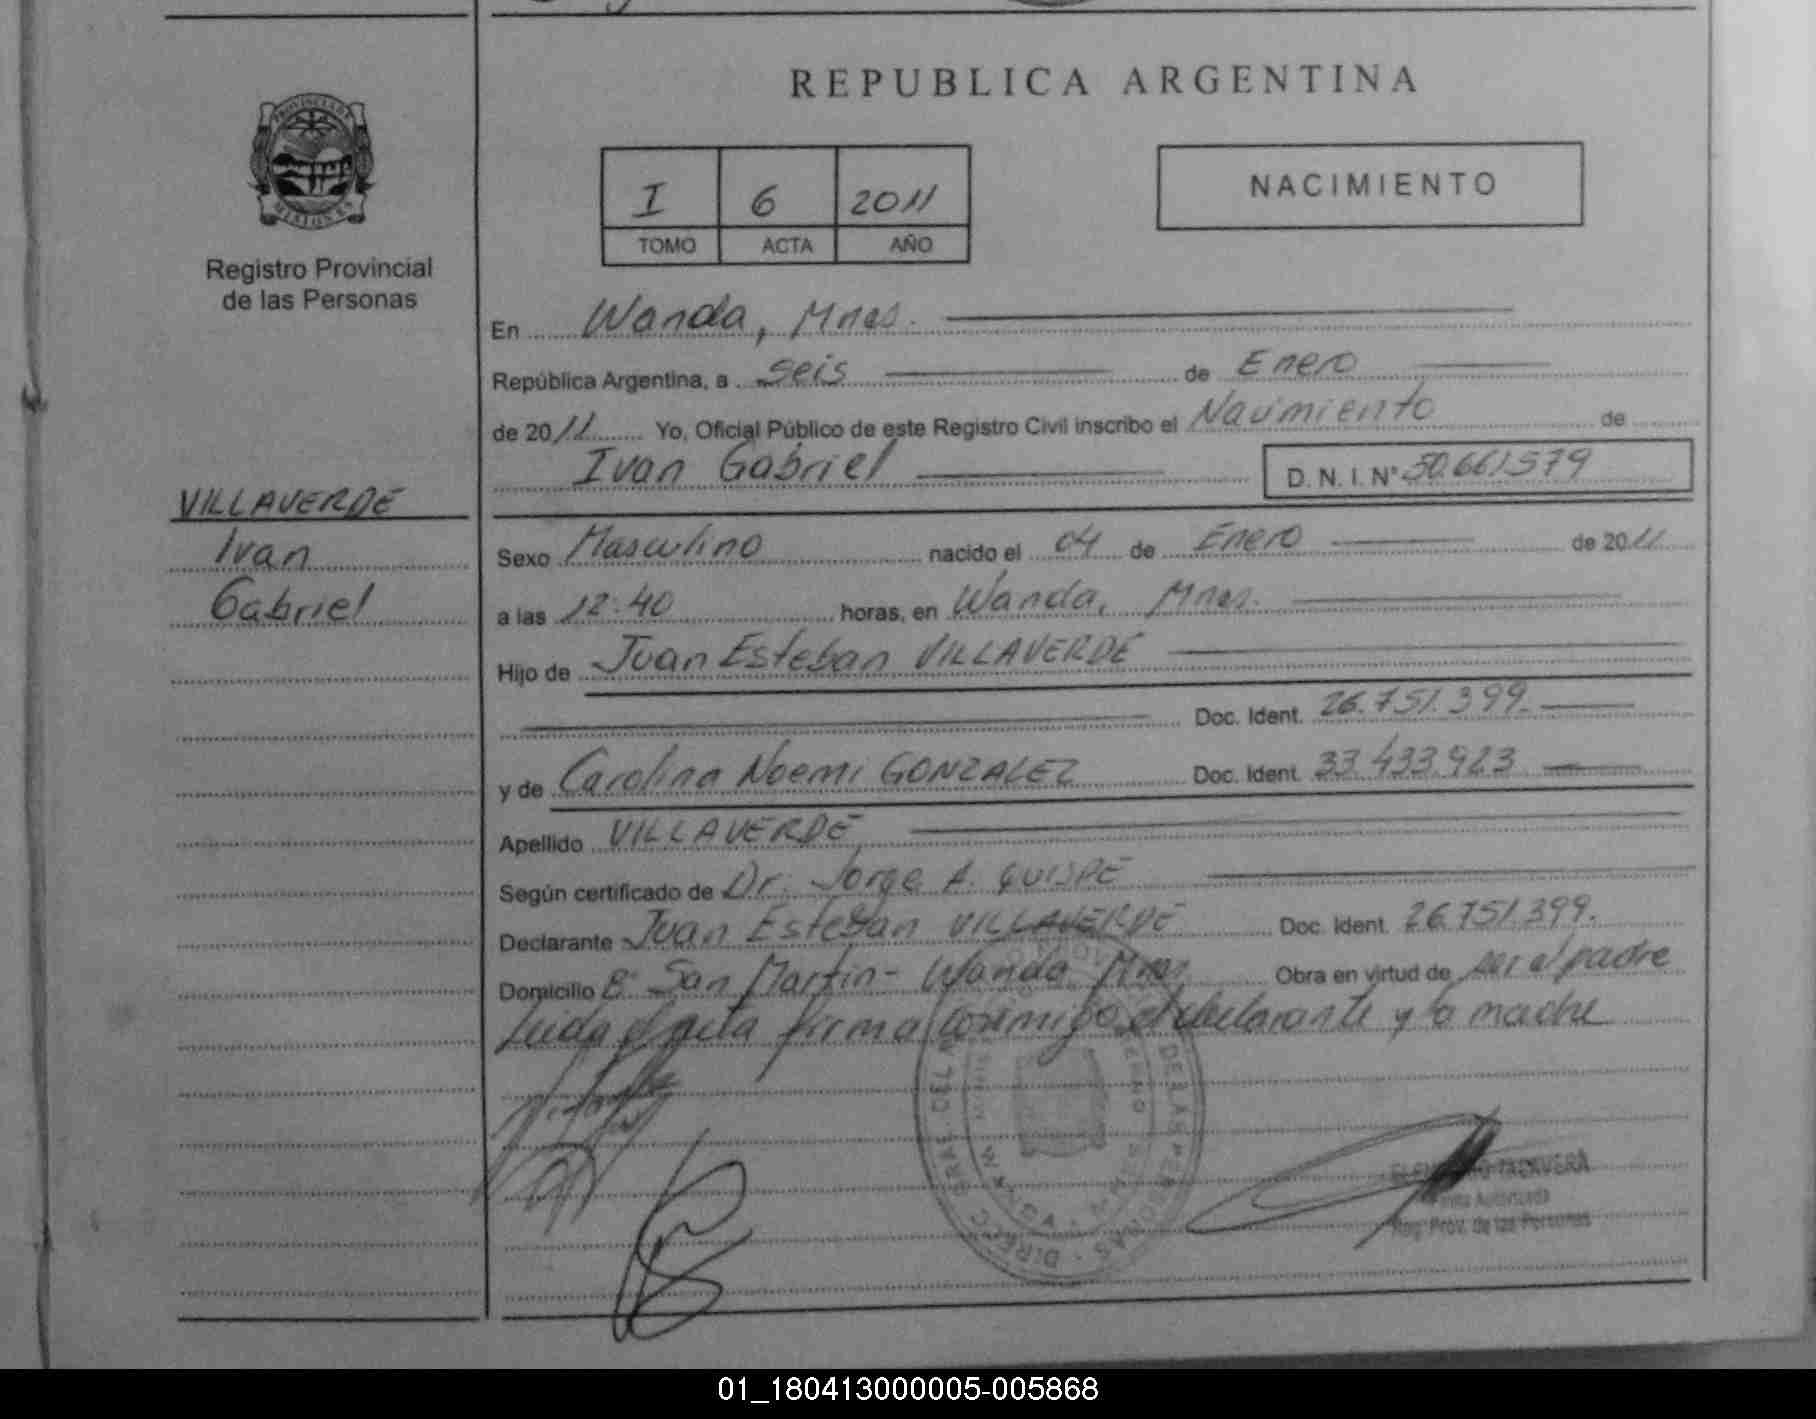 REPUBLICA ARGENTINA
PROVINCIA DE
MISIONES
Registro Provincial
de las Personas
I 6 2011
TOMO ACTA AÑO
NACIMIENTO
En Wanda, Mnes.
República Argentina, a seis de Enero
de 2011 Yo, Oficial Público de este Registro Civil inscribo el Nacimiento de
Ivan Gabriel D. N. I. Nº 50.661.579
VILLAVERDE
Ivan
Gabriel
Sexo Masculino nacido el 04 de Enero de 2011
a las 12:40 horas, en Wanda, Mnes.
Hijo de Juan Esteban VILLAVERDE
Doc. Ident. 26.751.399.
y de Carolina Noemi GONZALEZ Doc. Ident. 33.433.923
Apellido VILLAVERDE
Según certificado de Dr. Jorge A. QUISPE
Declarante Juan Esteban VILLAVERDE Doc. Ident. 26.751.399.
Domicilio Bº San Martin - Wanda, Mnes Obra en virtud de ser el padre
Leida el acta firma conmigo el declarante y la madre
TALAVERA
Firma Autorizada
Reg. Prov. de las Personas
01_180413000005-005868